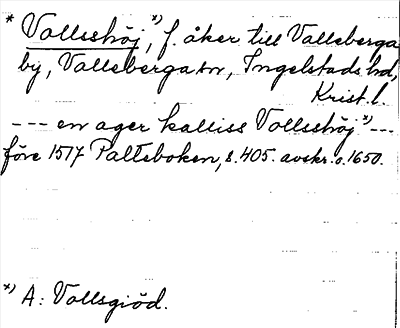 * Vollsshöj *), f. åker till Valleberga
by, Valleberga sn, Ingelstads hd,
Krist. l.
--- en ager kalliss Vollsshöj *) ---
före 1517 Palteboken, s. 405. avskr. o. 1650.
*) A: Vollsgiöd.